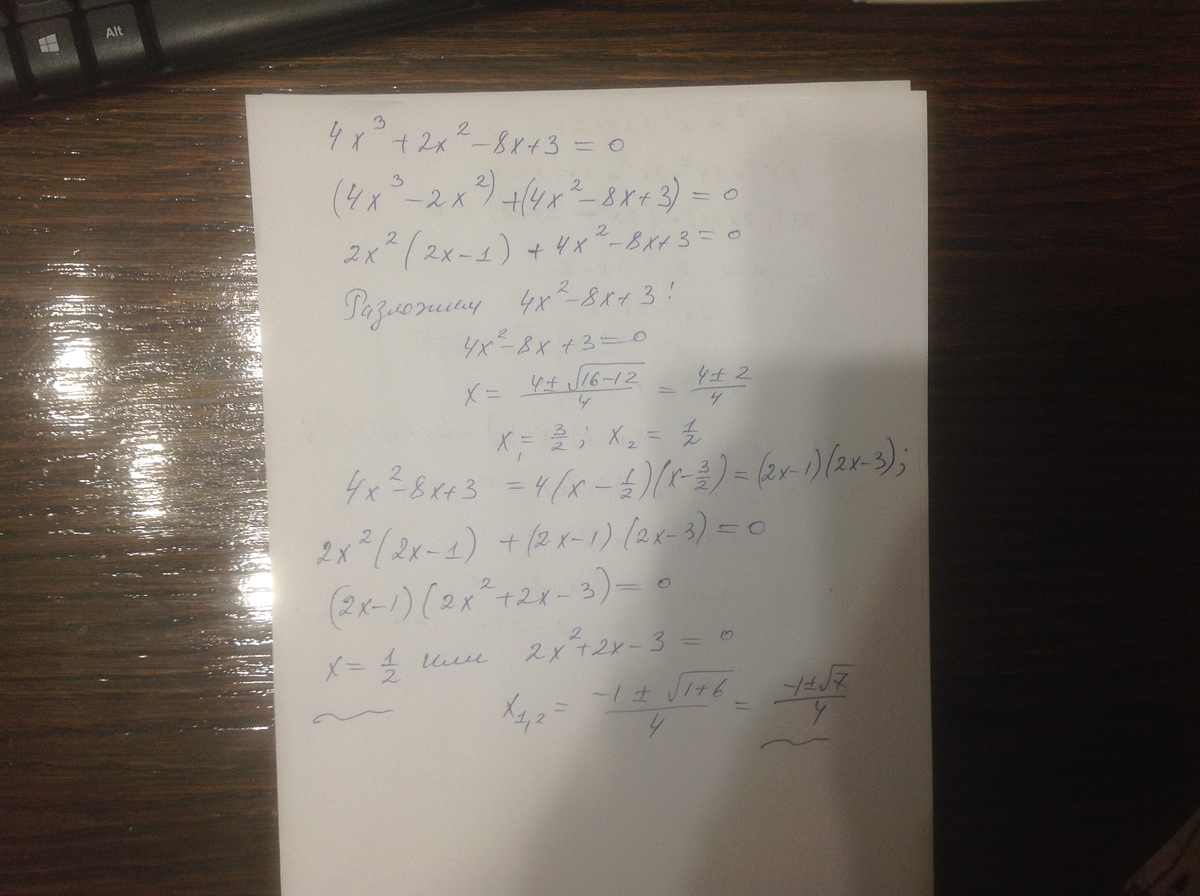 Alt
4x³ + 2x² - 8x + 3 = 0
(4x³ - 2x²) + (4x² - 8x + 3) = 0
2x² (2x - 1) + 4x² - 8x + 3 = 0
Разложим 4x² - 8x + 3 :
4x² - 8x + 3 = 0
x = (4 ± √(16-12))/4 = (4 ± 2)/4
x₁ = 3/2 ; x₂ = 1/2
4x² - 8x + 3 = 4(x - 1/2)(x - 3/2) = (2x-1)(2x-3);
2x² (2x - 1) + (2x - 1)(2x - 3) = 0
(2x - 1)(2x² + 2x - 3) = 0
x = 1/2 или 2x² + 2x - 3 = 0
x₁,₂ = (-1 ± √(1+6))/4 = (-1 ± √7)/4